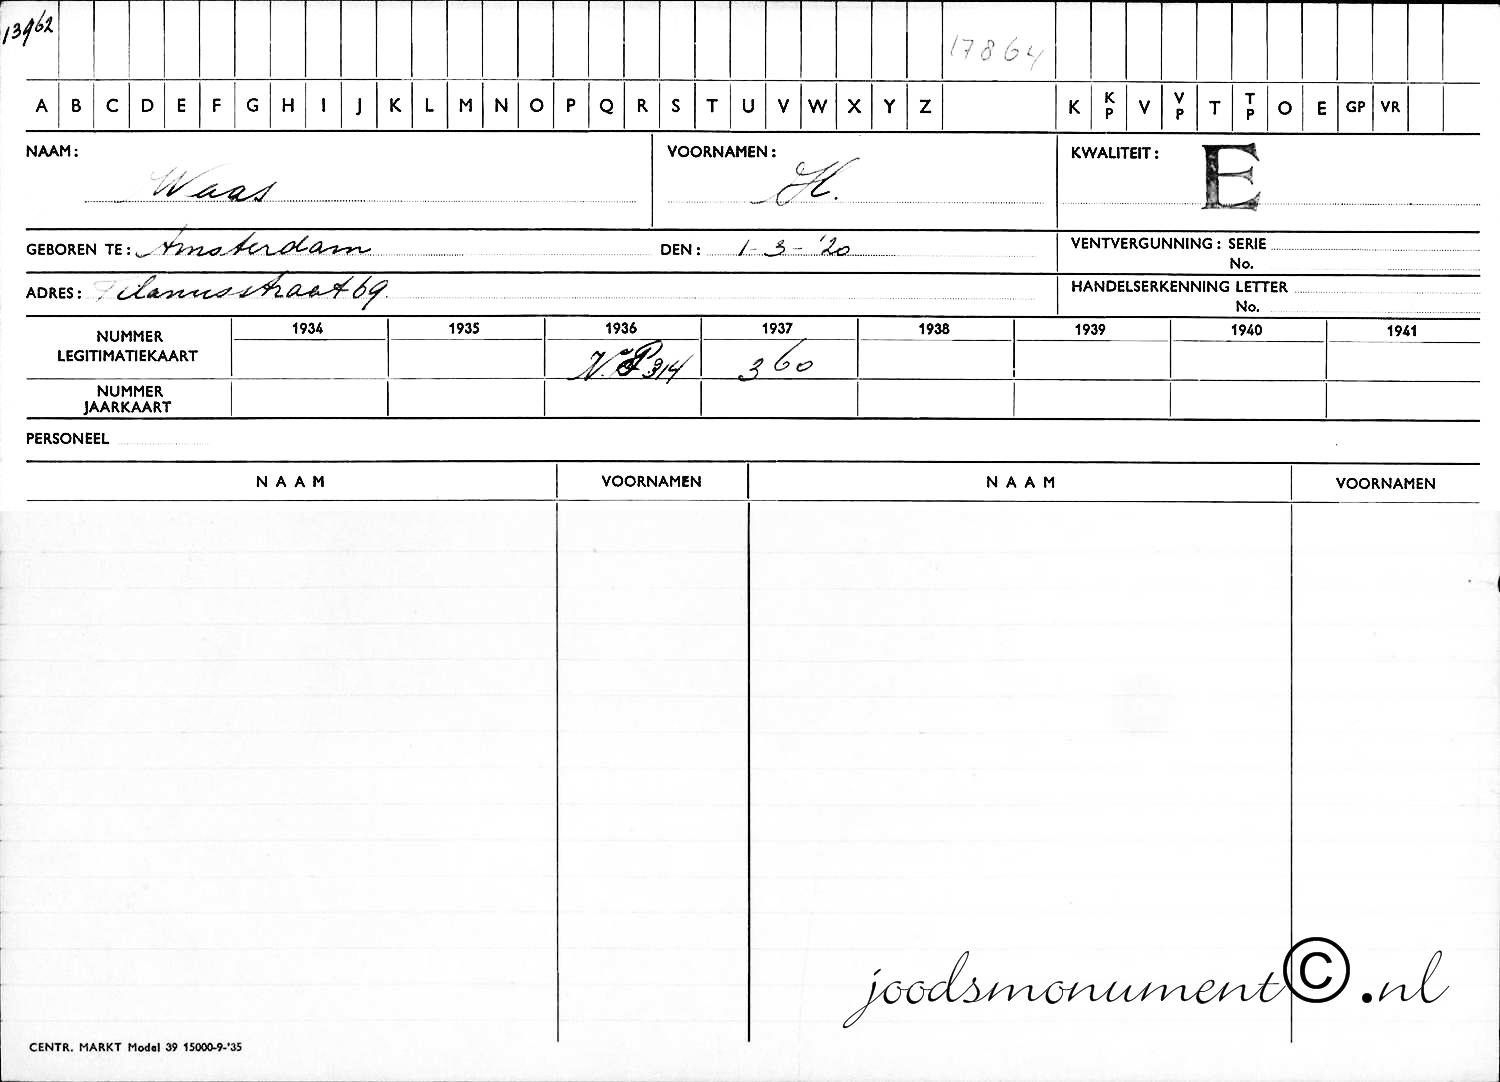 13962
17864
A B C D E F G H I J K L M N O P Q R S T U V W X Y Z K KP V VP T TP O E GP VR
NAAM: Waas VOORNAMEN: H. KWALITEIT: E
GEBOREN TE: Amsterdam DEN: 1-3-'20 VENTVERGUNNING: SERIE
No.
ADRES: Tilanusstraat 69. HANDELSERKENNING LETTER
No.
NUMMER LEGITIMATIEKAART 1934 1935 1936 1937 1938 1939 1940 1941
314 360
NUMMER JAARKAART
PERSONEEL
NAAM VOORNAMEN NAAM VOORNAMEN
joodsmonument©.nl
CENTR. MARKT Model 39 15000-9-'35